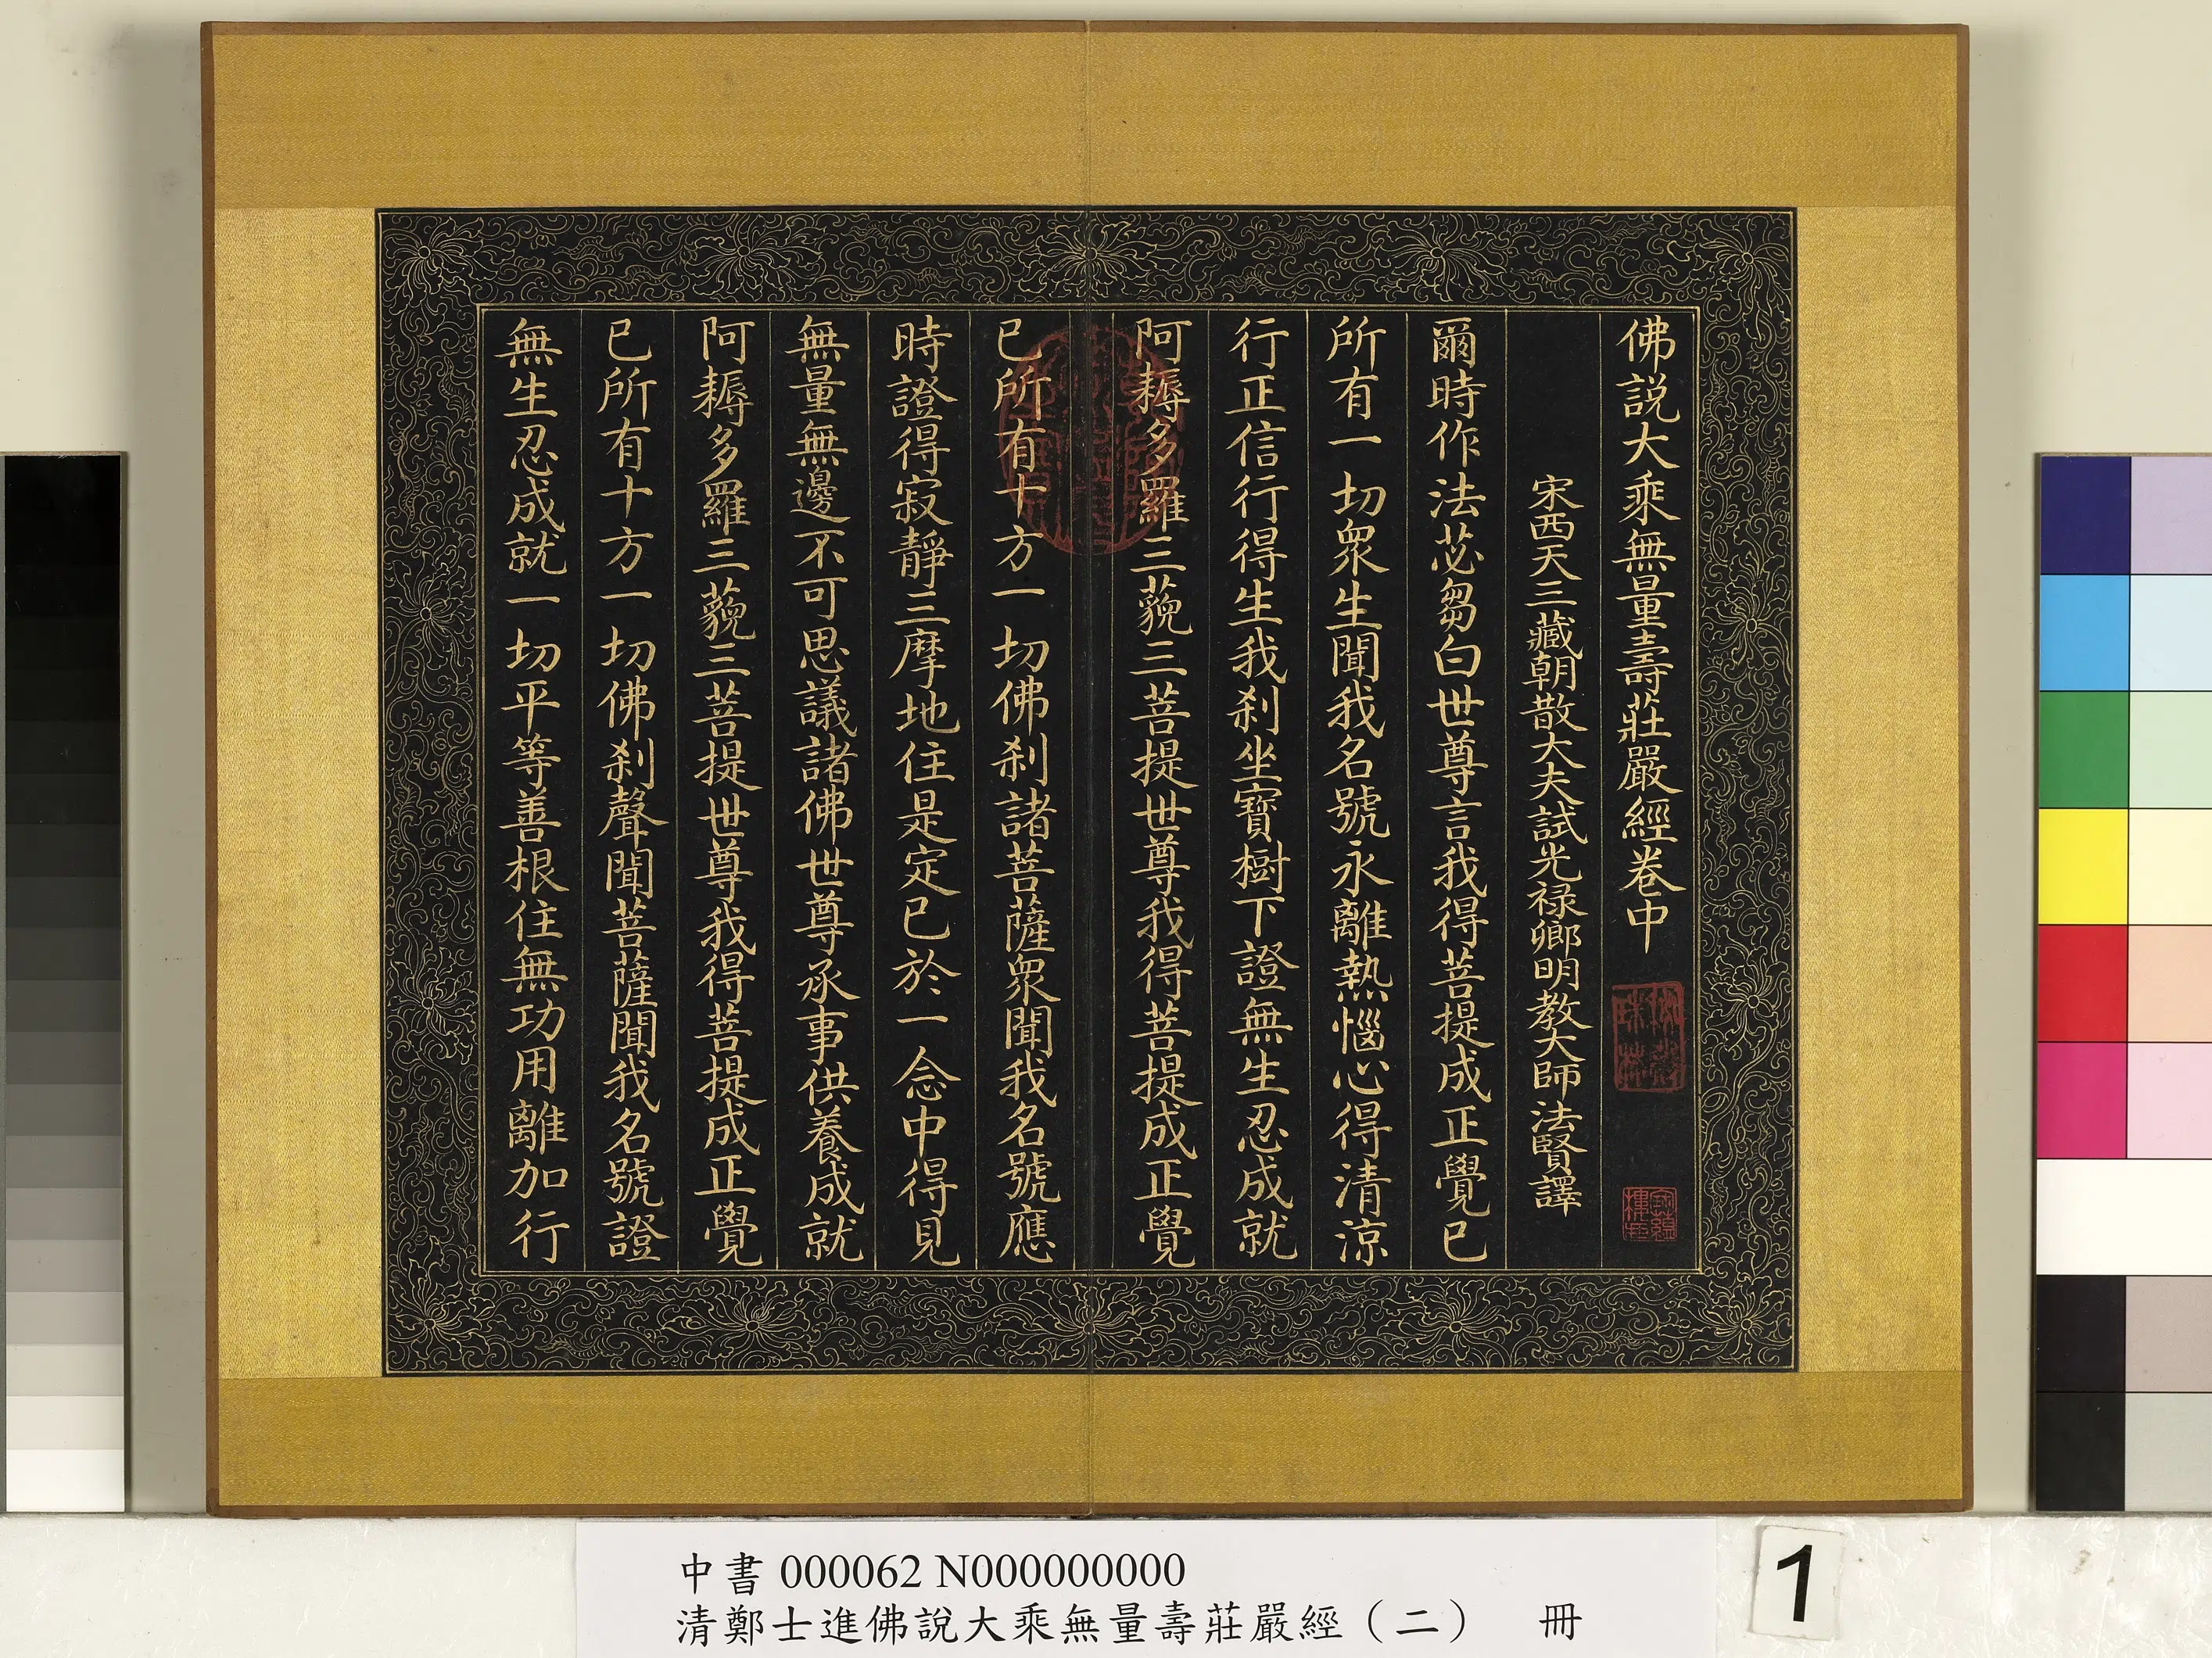 佛說大乘無量壽莊嚴經卷中
宋西天三藏朝散大夫試光祿卿明教大師法賢譯
爾時作法苾芻白世尊言我得菩提成正覺已
所有一切眾生聞我名號永離熱惱心得清涼
行正信行得生我剎坐寶樹下證無生忍成就
阿耨多羅三藐三菩提世尊我得菩提成正覺
已所有十方一切佛剎諸菩薩眾聞我名號應
時證得寂靜三摩地住是定已於一念中得見
無量無邊不可思議諸佛世尊承事供養成就
阿耨多羅三藐三菩提世尊我得菩提成正覺
已所有十方一切佛剎聲聞菩薩聞我名號證
無生忍成就一切平等善根住無功用離加行
中書 000062 N000000000
清鄭士進佛說大乘無量壽莊嚴經（二） 冊
1